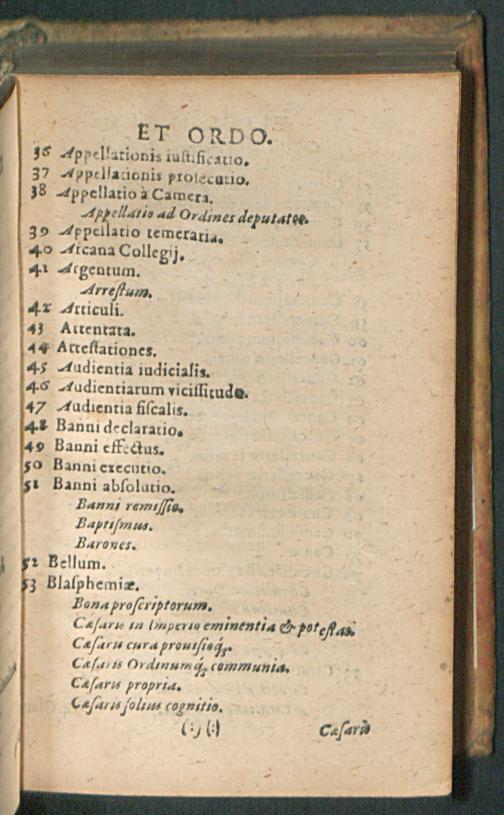 ET ORDO.
36 Appellationis iustificatio.
37 Appellationis prosecutio.
38 Appellatio à Camera.
Appellatio ad Ordines deputatos.
39 Appellatio temeraria.
40 Arcana Collegij.
41 Argentum.
Arrestum.
42 Articuli.
43 Attentata.
44 Attestationes.
45 Audientia iudicialis.
46 Audientiarum vicissitudo.
47 Audientia fiscalis.
48 Banni declaratio.
49 Banni effectus.
50 Banni executio.
51 Banni absolutio.
Banni remissio.
Baptismus.
Barones.
52 Bellum.
53 Blasphemiæ.
Bona proscriptorum.
Cæsaris in Imperio eminentia & potestas.
Cæsaris cura prouisioq́;.
Cæsaris Ordinumq́; communia.
Cæsaris propria.
Cæsaris solius cognitio.
(:) (:) Cæsaris